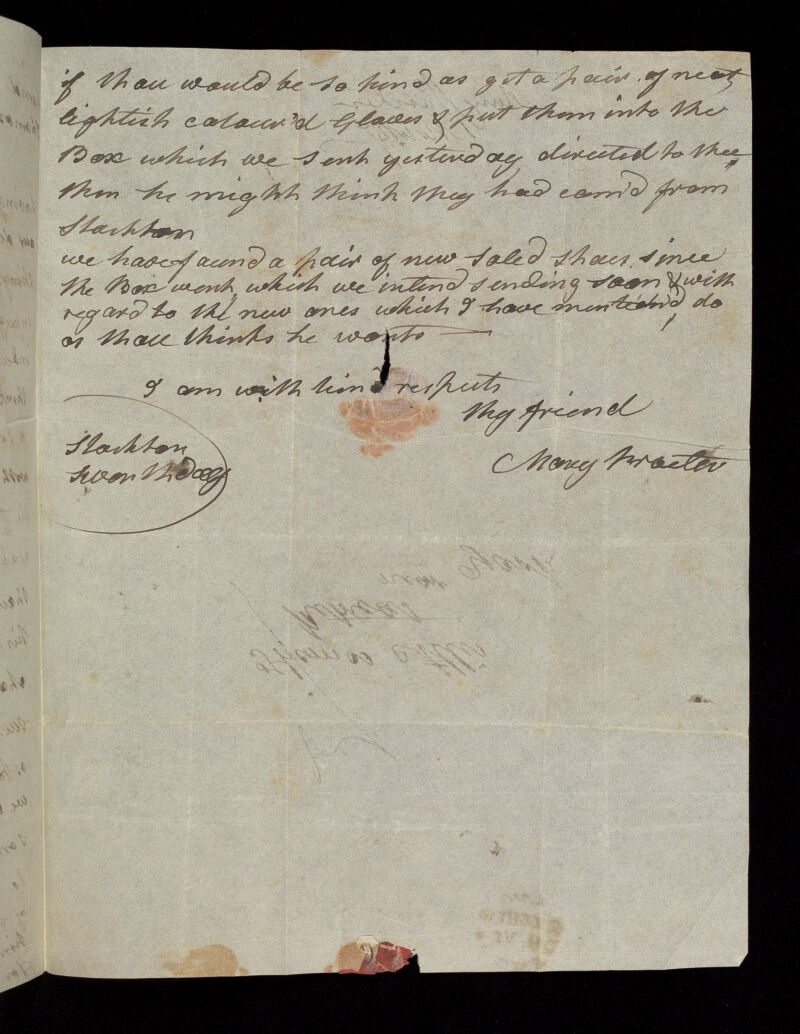 if thou would be so kind as get a pair of neat,
lightish colour'd Gloves & put them into the
Box which we sent yesterday directed to thee,
then he might think they had com'd from
Stockton
we have found a pair of new soled shoes since
the Box went which we intend sending soon & with
regard to the new ones which I have mention'd, do
as thou thinks he wants
I am with kind respects
thy friend
Mary Procter
Stockton
Seventhday